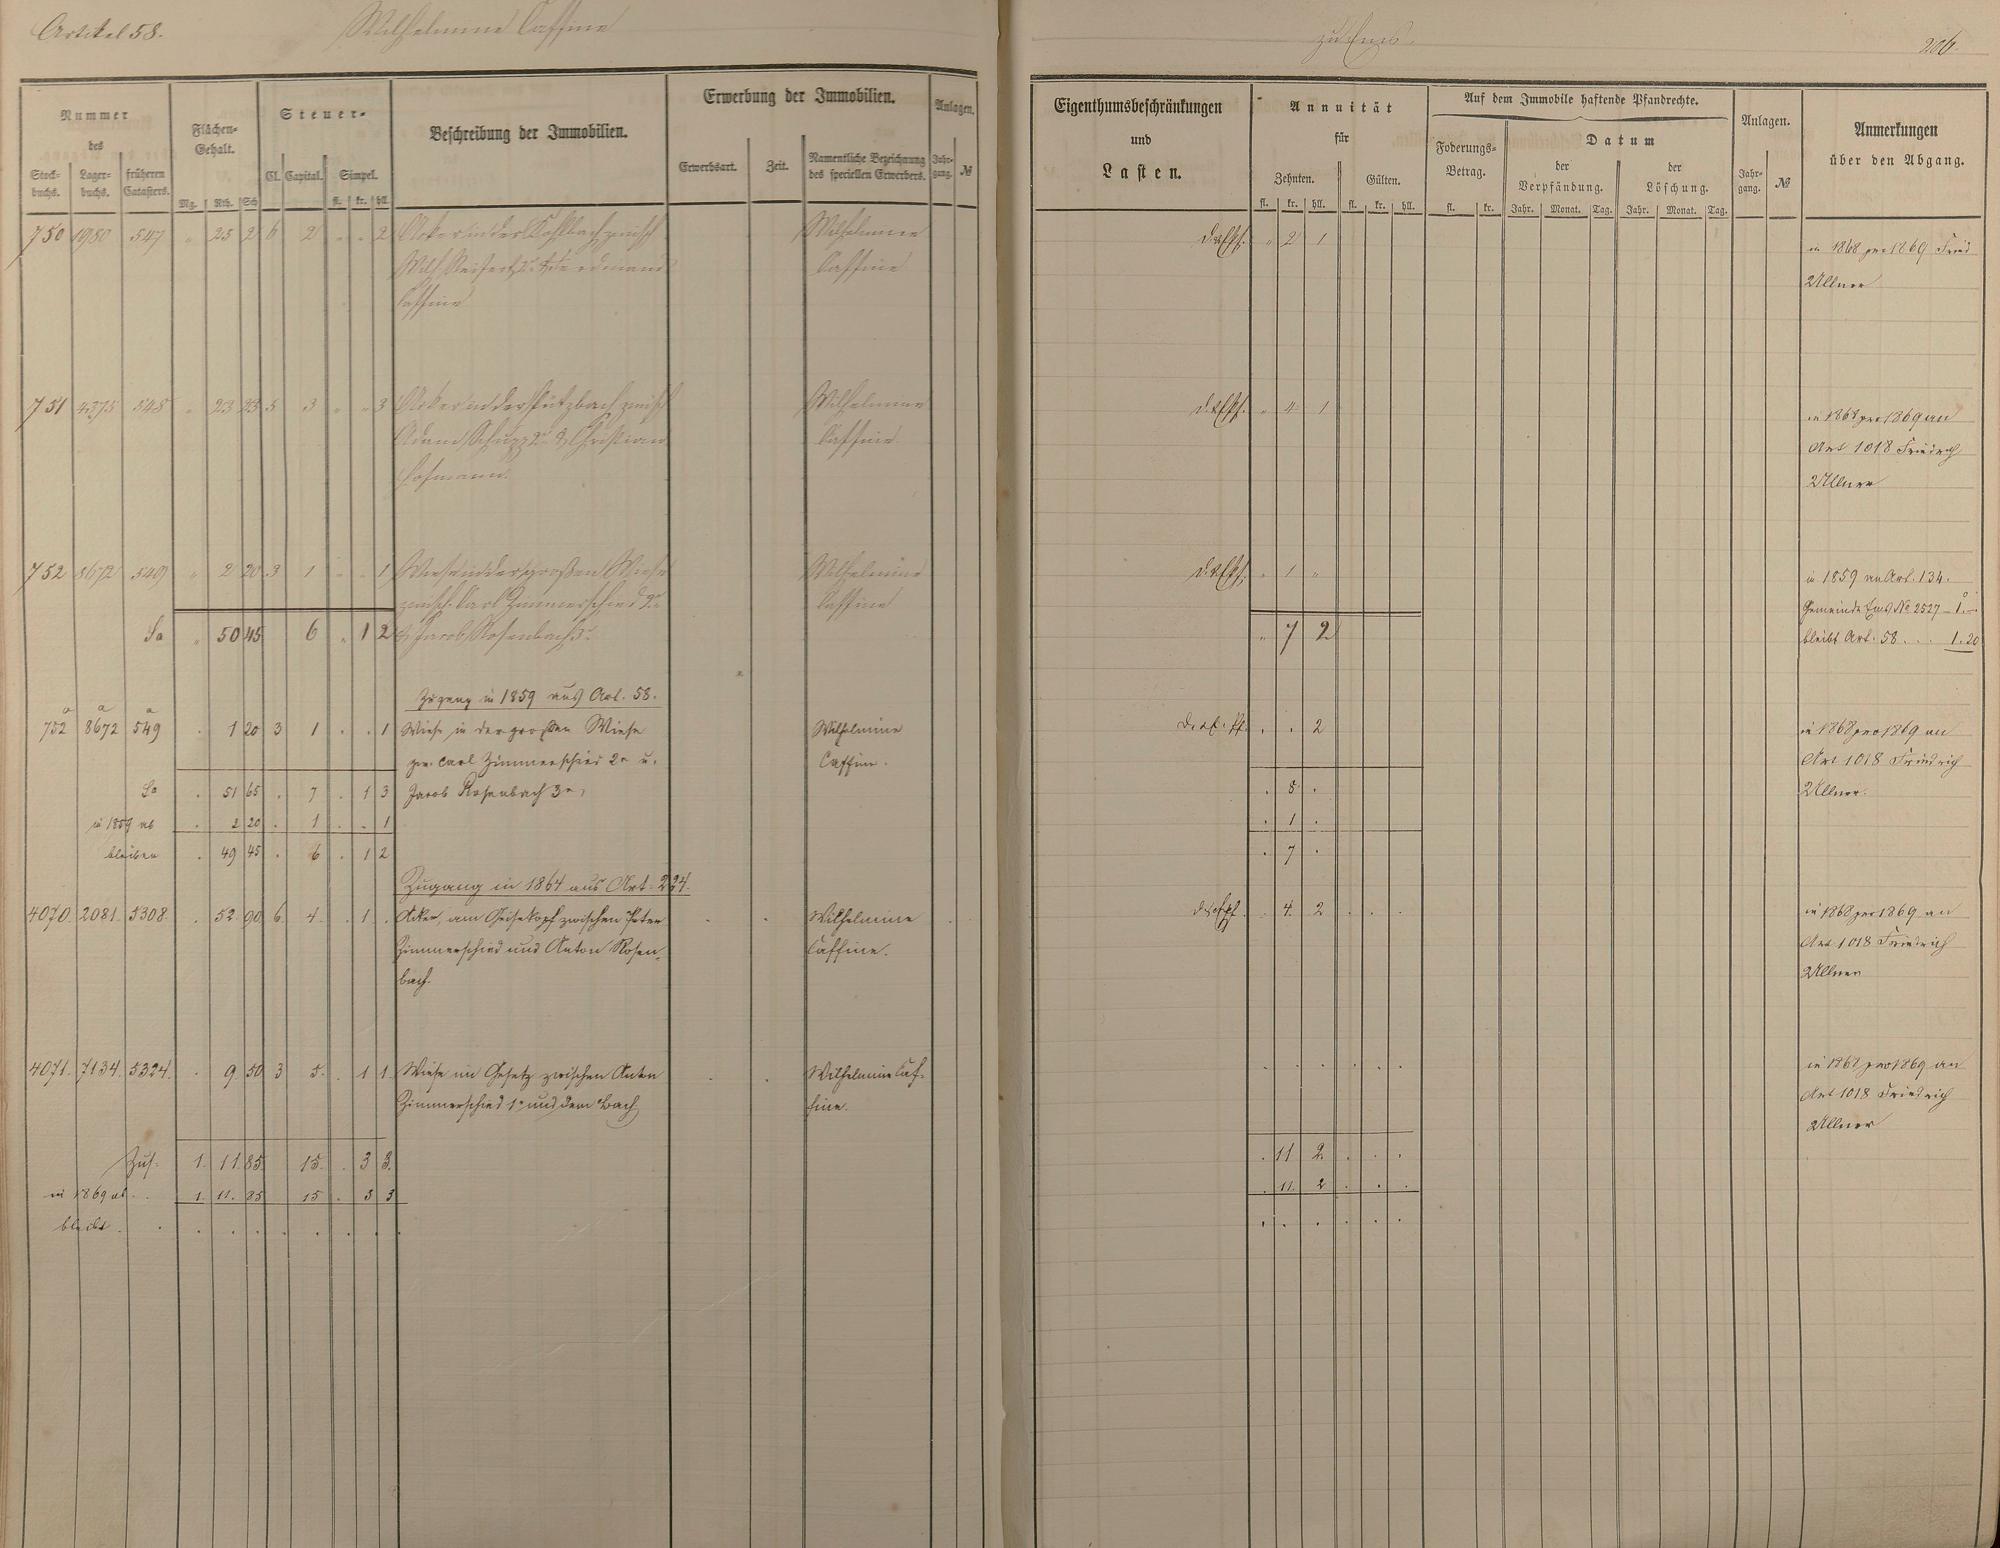 Artikel 58. Wilhelmine Caffine zu Ems. 206.
Nummer des
Stockbuchs. Lagerbuchs. früheren Catasters.
Flächen-Gehalt.
Mg. Rth. Sch
Steuer-
Cl. Capital. Simpel.
fl. kr. hll.
Beschreibung der Immobilien.
Erwerbung der Immobilien.
Erwerbsart. Zeit. Namentliche Bezeichnung des speciellen Erwerbers.
Anlagen.
Jahr-gang. №
Eigenthumsbeschränkungen
und
Lasten.
Annuität
für
Zehnten. Gülten.
fl. kr. hll. fl. kr. hll.
Auf dem Immobile haftende Pfandrechte.
Foderungs-Betrag.
fl. kr.
Datum
der Verpfändung. der Löschung.
Jahr. Monat. Tag. Jahr. Monat. Tag.
Anlagen.
Jahr-gang. №
Anmerkungen
über den Abgang.
750 1980 547 " 25 2 6 2 " " 2 Acker in der Kohlbach zwisch Wilhelmine " 2 1 in 1868 pro 1869 Fried
Caffine Ullner
Caffine
751 4375 548 " 23 23 5 3 " " 3 Acker in der Pützbach zwisch Wilhelmine " 4 1 in 1868 pro 1869 an
Adam Schupp 2r & Christian Caffine Art 1018 Friedrich
Hofmann. Ullner
752 8672 549 " 2 20 3 1 " " 1 Wiese in der großen Wiese Wilhelmine " 1 " in 1859 an Art. 134.
zwisch. Carl Zimmerschied 2r Caffine Gemeinde Ems No 2527 – 1. –
Sa " 50 45 6 " 1 2 & Jacob Rosenbach 3r. " 7 2 bleibt Art. 58 . . . 1.20
Zugang in 1859 aus Art. 58.
752a 8672a 549a . 1 20 3 1 . . 1 Wiese in der großen Wiese Wilhelmine . . 2 in 1868 pro 1869 an
zw. Carl Zimmerschied 2r u. Caffine. Art 1018 Friedrich
Sa . 51 65 . 7 . 1 3 Jacob Rosenbach 3r, . 8 . Ullner.
in 1859 ab . 2 20 . 1 . . 1 . 1 .
bleiben . 49 45 . 6 . 1 2 . 7 .
Zugang in 1864 aus Art. 224.
4070 2081. 5308. . 52. 90 6. 4. . 1 . Acker, am Geisekopf zwischen Peter Wilhelmine . 4. 2 . . . in 1868 pro 1869 an
Zimmerschied und Anton Rosen- Caffine. Art 1018 Friedrich
bach. Ullner
4071. 7134. 5324. . 9. 50 3 5. . 1 1. Wiese im Gesetz zwischen Anton Wilhelmine Caf- . . . . . . in 1868 pro 1869 an
Zimmerschied 1r und dem Bach fine. Art 1018 Friedrich
Ullner
Zus. 1. 11. 85. 15. . 3 3. . 11 2. . . .
in 1869 ab . . 1. 11. 85 15 . 3 3 . 11. 2 . . .
bleibt . . . . . . . . . . . . . . . .